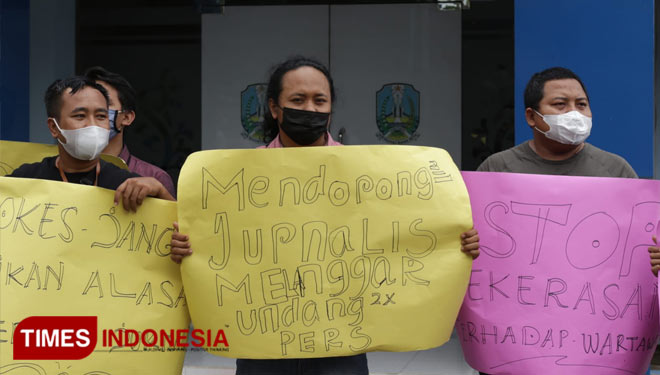 OKES - JANG
IKAN ALASA
Mendorong ITU
JURNALIS
MELANGGAR
UNDANG 2X
PERS
STOP
EKERASAN
ERHADAP - WARTA
TIMES INDONESIA